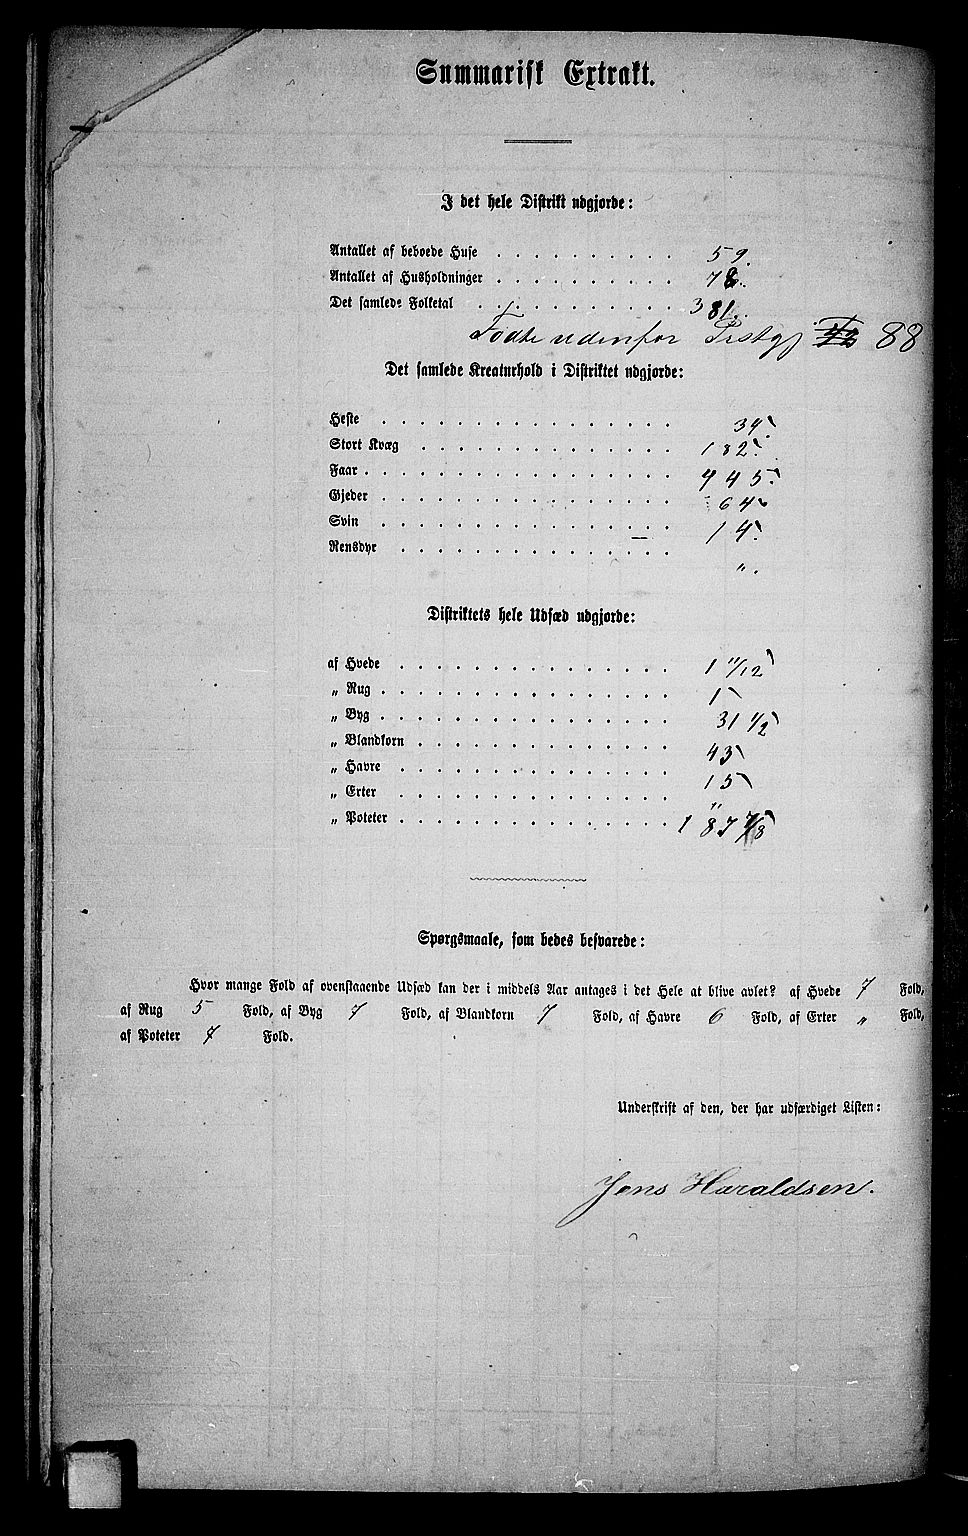 Summarisk Extrakt.
I det hele Distrikt udgjorde:
Antallet af beboede Huse . . . . . . . . . . 59.
Antallet af Husholdninger . . . . . . . . . . 78.
Det samlede Folketal . . . . . . . . . . . 381.
Fødte udenfor Prstgj 88
Det samlede Kreaturhold i Distriktet udgjorde:
Heste . . . . . . . . . . . . . . . . 34.
Stort Kvæg . . . . . . . . . . . . . . 182.
Faar . . . . . . . . . . . . . . . . . 445.
Gjeder . . . . . . . . . . . . . . . . 64
Svin . . . . . . . . . . . . . . . . 14.
Rensdyr . . . . . . . . . . . . . . . „.
Distriktets hele Udsæd udgjorde:
af Hvede . . . . . . . . . . . . . . . 1 11/12
„ Rug . . . . . . . . . . . . . . . . 1
„ Byg . . . . . . . . . . . . . . . . 31 1/2
„ Blandkorn . . . . . . . . . . . . . . 43
„ Havre . . . . . . . . . . . . . . . 15
„ Erter . . . . . . . . . . . . . . . "
„ Poteter . . . . . . . . . . . . . . . 187 7/8
Spørgsmaale, som bedes besvarede:
Hvor mange Fold af ovenstaaende Udsæd kan der i middels Aar antages i det Hele at blive avlet? af Hvede 7 Fold,
af Rug 5 Fold, af Byg 7 Fold, af Blandkorn 7 Fold, af Havre 6 Fold, af Erter „ Fold,
af Poteter 7 Fold.
Underskrift af den, der har udfærdiget Listen:
Jens Haraldsen.